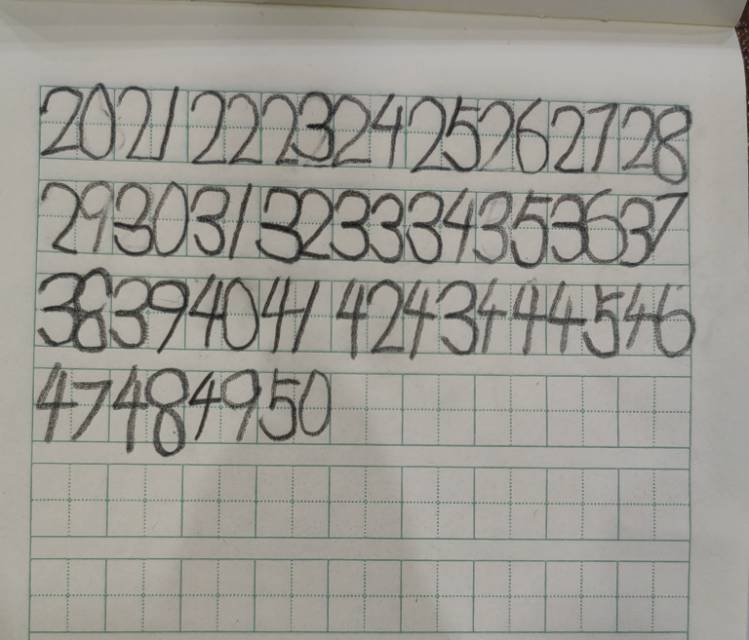 20 21 22 23 24 25 26 27 28
29 30 31 32 33 34 35 36 37
38 39 40 41 42 43 44 45 46
47 48 49 50